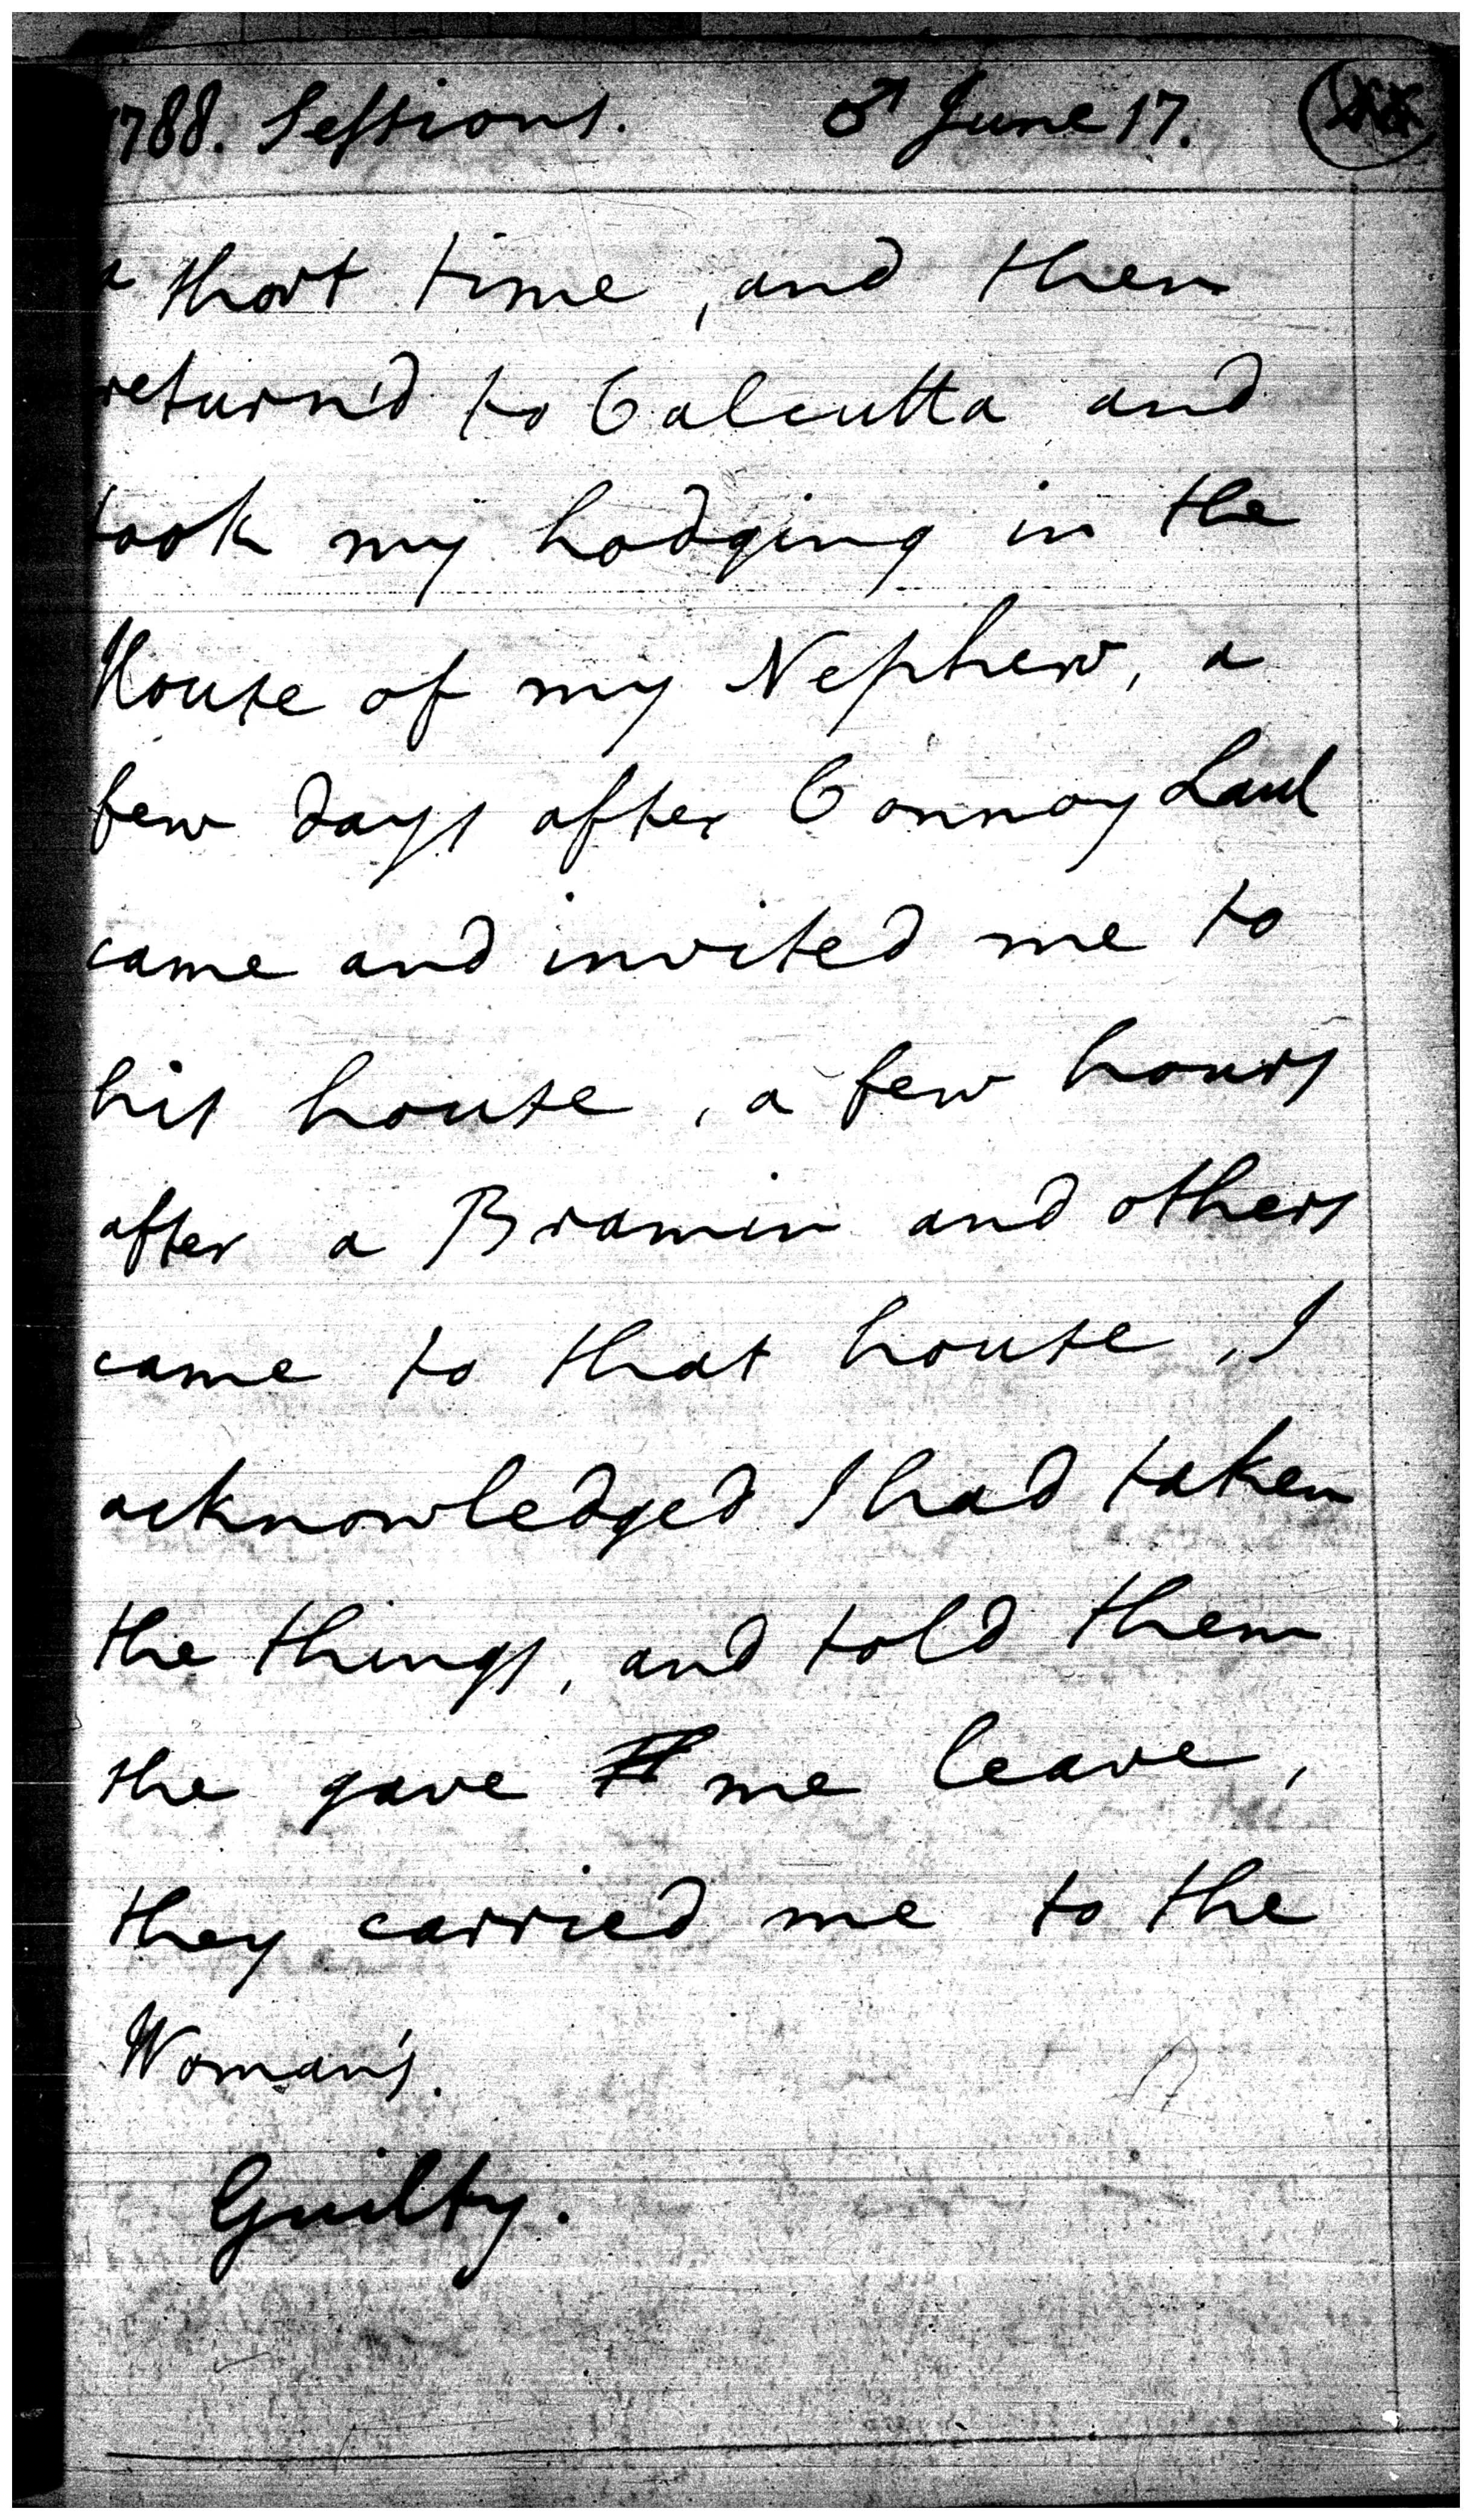 1788. Sessions. ♂ June 17.
a short time, and then
return'd to Calcutta and
took my lodging in the
House of my Nephew, a
few days after Connoy Laul
came and invited me to
his house, a few hours
after a Bramin and others
came to that house, I
acknowledged I had taken
the things, and told them
she gave me leave,
they carried me to the
Woman's.
Guilty.